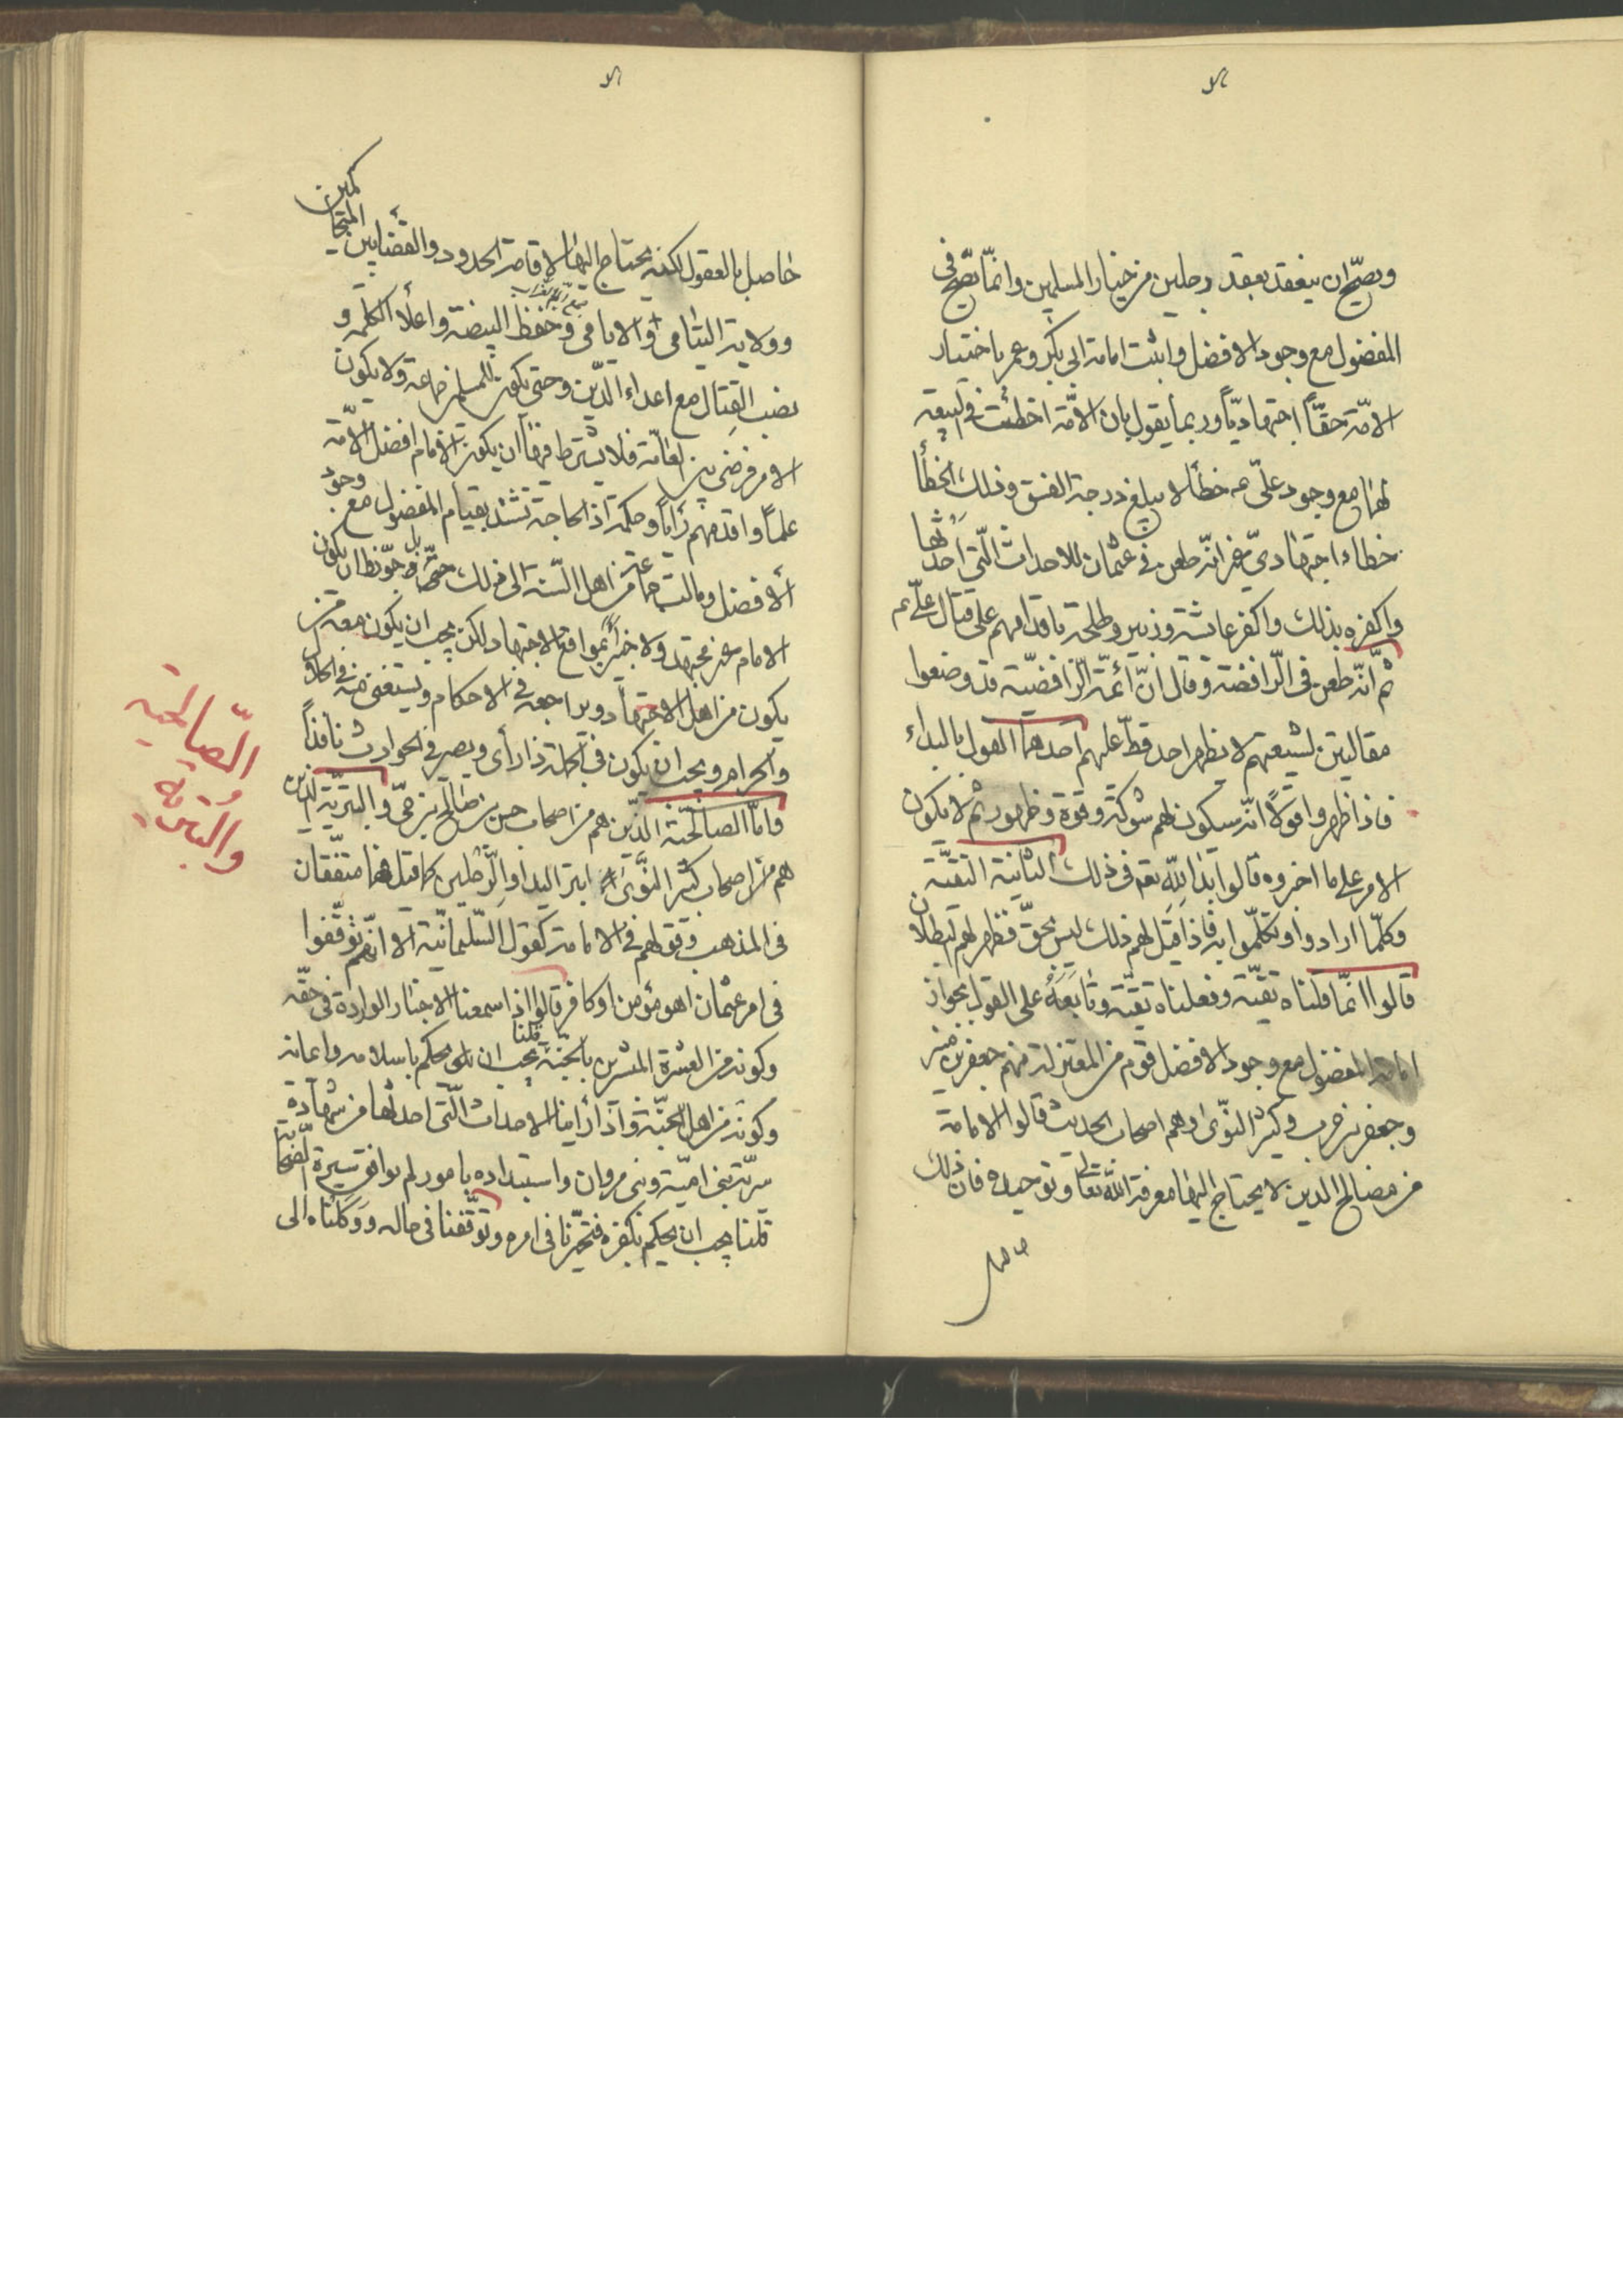 ويصحّ ان ينعقد بعقد رجلين من خيار المسلمين وانّما تصحّ في
المفضول مع وجود الافضل واثبت امامة ابي بكر وعمر باختيار
الامّة حقّاً اجتهاديّاً وربما يقول بان الامّة اخطئت في البيعة
لهما مع وجود علىّ عم خطأ لا يبلغ درجة الفسق وذلك الخطأ
خطاء اجتهادىّ غير انّه طعن في عثمان للاحداث الّتى احدثها
واكفره بذلك واكفر عايشة وزبير وطلحة باقدامهم على قتال علىّ عم
ثم انّه طعن فى الرّافضة وقال انّ ائمّة الرّافضيّة قد وضعوا
مقالتين لشيعتهم لا يظهر احد قطّ عليهم احدهما القول بالبداء
فاذا ظهروا قولاً انّه سيكون لهم شوكة وقوة وظهور ثم لا يكون
الامر على ما اخبروه قالوا بدا لله تع فى ذلك الثانية التقيّة
وكلّما ارادوا وتكلّموا به فاذا قيل لهم ذلك ليس بحقّ فظهر لهم البطلان
قالوا انّما قلناه تقيّة وفعلناه تقيّة وتابَعَهُ على القول بجواز
امامة المفضول مع وجود الافضل قوم من المعتزلة منهم جعفر بن مبشر
وجعفر بن حرب وكثير النّوى وهم اصحاب الحديث قالوا الامامة
من مصالح الدين لا يحتاج اليها معرفة الله تعالى وتوحيده فان ذلك
حاصل بالعقول لكنه يحتاج اليها لاقامة الحدود والقضا بين المتحاكمين
وولاية اليتامى والايامى وحفظ البيضة واعلاء الكلمة و
نصب القتال مع اعداء الدّين وحتى يكون للمسلمين جماعة ولا يكون
الامر فوضى بين العامّة فلا يشترط فيها ان يكون الامام افضل الامّة
علماً واقدمهم رأياً وحكمة اذ الحاجة تنسد بقيام المفضول مع وجود
الأفضل ومالت جماعة من اهل السّنة الى ذلك حتّى جوّزوا ان يكون
الامام غير مجتهد ولا خبير بمواقع الاجتهاد ولكن يجب ان يكون معه من
يكون من اهل الاجتهاد ويراجعه في الاحكام ويستفتى منه في الحلال
والحرام ويجب ان يكون في الجملة ذا رأى وبصر في الحوادث نافذاً
فامّا الصالحيّة الذّين هم من اصحاب حسن بن صالح بن حىّ والبتريّة الذين
هم من اصحاب كثير النّوى ابتر اليد او الرّجلين كما قيل هما متفقان
فى المذهب وقولهم فى الامامة كقول السّليمانيّة الا انّهم توقّفوا
فى امر عثمان اهو مؤمن او كافر قالوا اذا سمعنا الاخبار الواردة في حقّه
وكونه من العشرة المبشرين بالجنّة قلنا يجب ان يحكم باسلامه وايمانه
وكونه من اهل الجنّة واذا رأينا الاحداث الّتى احدثها من
بنى اميّة وبنى مروان واستبداده بامور لم يوافق سيرة الصّحابة
قلنا يجب ان يحكم بكفره فتحيّرنا فى امره وتوقّفنا فى حاله ووكلناه الى
الصّالحيّة
والبتريّة